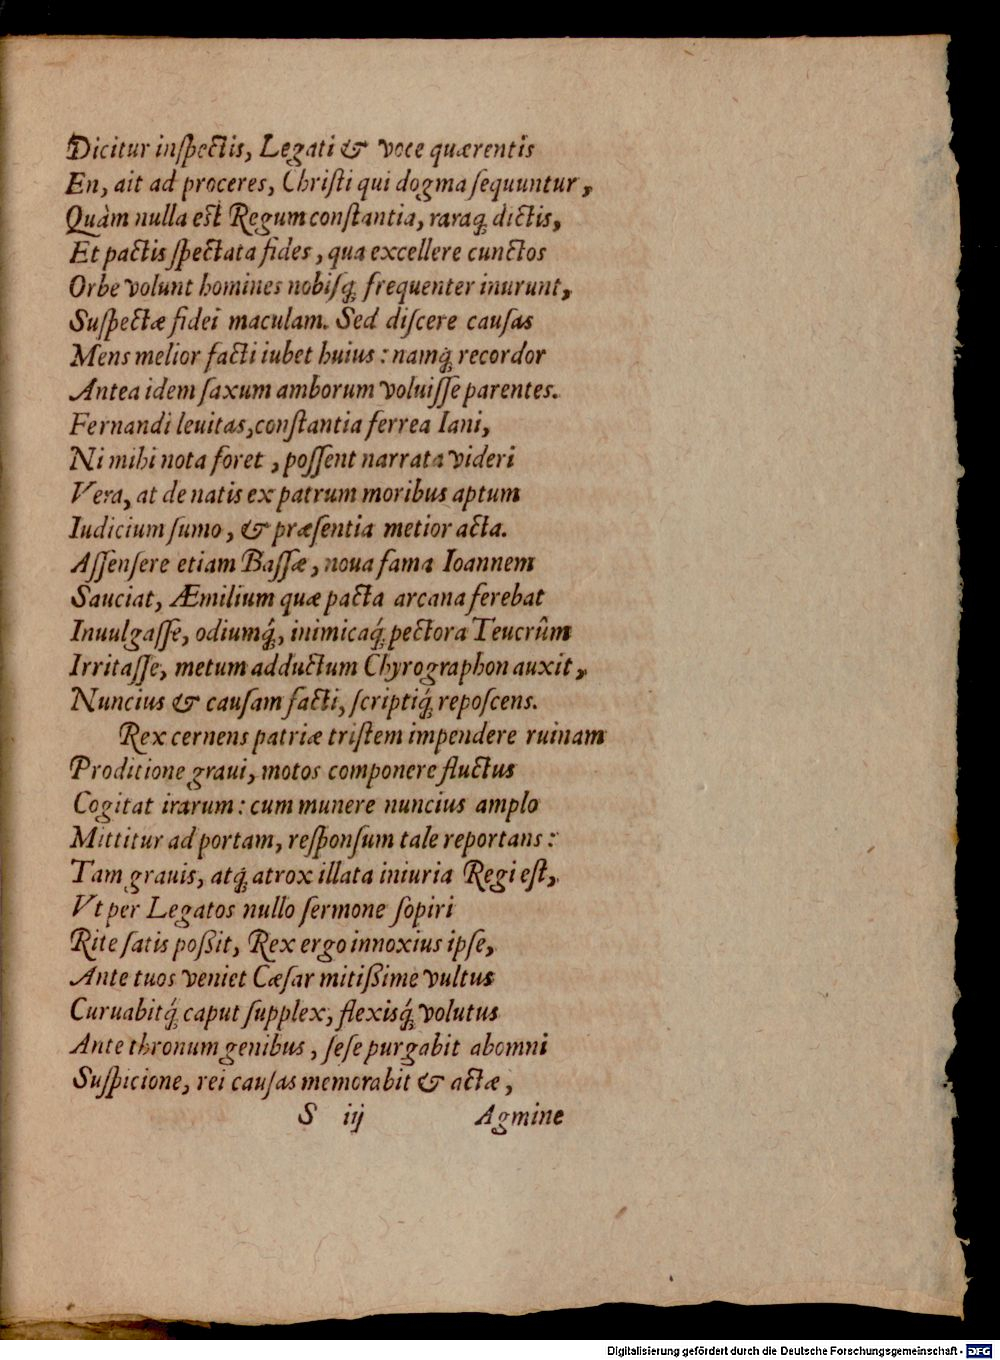 Dicitur inſpectis, Legati & voce quærentis
En, ait ad proceres, Chriſti qui dogma ſequuntur,
Quàm nulla est Regum conſtantia, raraq; dictis,
Et pactis ſpectata fides, qua excellere cunctos
Orbe volunt homines nobiſq; frequenter inurunt,
Suſpectæ fidei maculam. Sed diſcere cauſas
Mens melior facti iubet huius: namq; recordor
Antea idem ſaxum amborum voluiſſe parentes.
Fernandi leuitas, conſtantia ferrea Iani,
Ni mihi nota foret, poſſent narrata videri
Vera, at de natis ex patrum moribus aptum
Iudicium ſumo, & præſentia metior acta.
Aſſenſere etiam Baſſæ, noua fama Ioannem
Sauciat, Æmilium quæ pacta arcana ferebat
Inuulgaſſe, odiumq́;, inimicaq́; pectora Teucrûm
Irritaſſe, metum adductum Chyrographon auxit,
Nuncius & cauſam facti, ſcriptiq́; repoſcens.
Rex cernens patriæ triſtem impendere ruinam
Proditione graui, motos componere fluctus
Cogitat irarum: cum munere nuncius amplo
Mittitur ad portam, reſponſum tale reportans:
Tam grauis, atq́; atrox illata iniuria Regi eſt,
Vt per Legatos nullo ſermone ſopiri
Rite ſatis poßit, Rex ergo innoxius ipſe,
Ante tuos veniet Cæſar mitißime vultus
Curuabitq́; caput ſupplex, flexisq́; volutus
Ante thronum genibus, ſeſe purgabit ab omni
Suſpicione, rei cauſas memorabit & actæ,
S iij Agmine
Digitalisierung gefördert durch die Deutsche Forschungsgemeinschaft - DFG